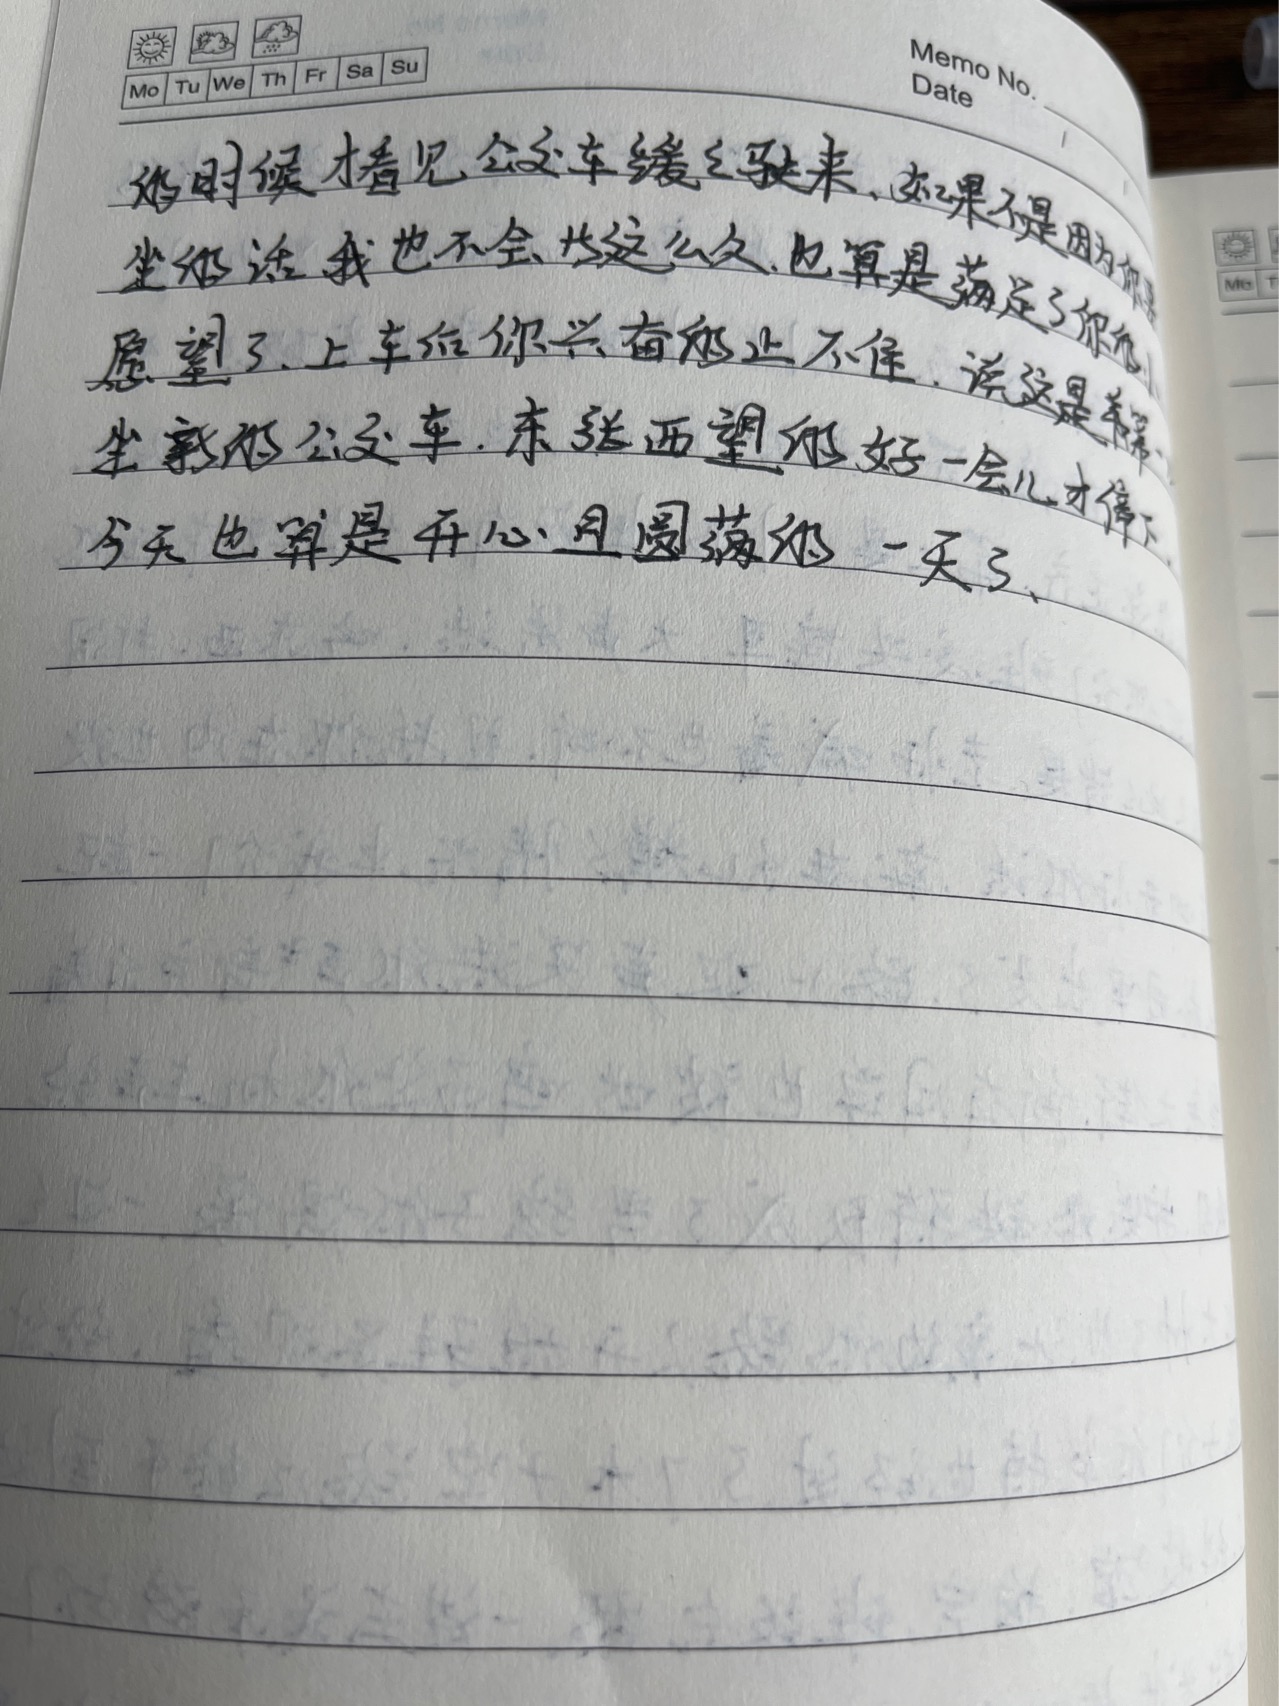 Mo Tu We Th Fr Sa Su
Memo No.
Date
的时候才看见公交车缓缓驶来、如果不是因为你
坐的话我也不会等这么久、也算是满足了你的
愿望了、上车后你兴奋的止不住、说这是
坐新的公交车、东张西望的好一会儿才停下
今天也算是开心且圆满的一天了、
Mo